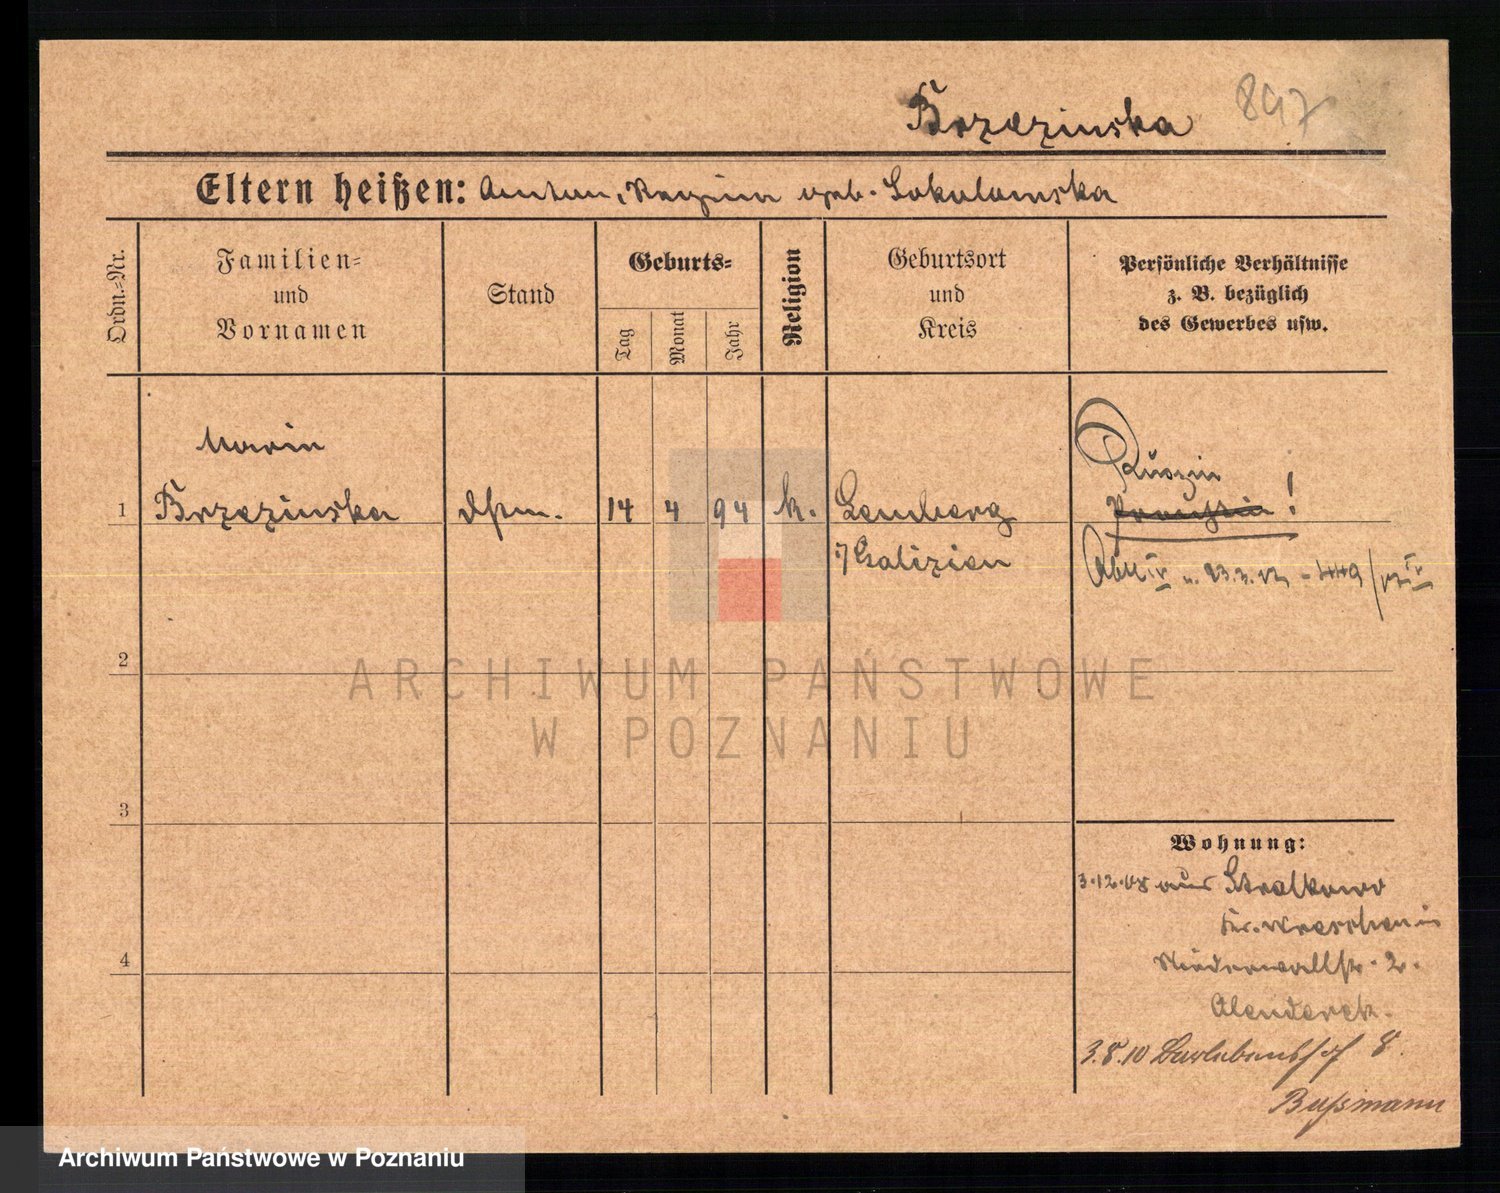 Brzezinska 897
Eltern heißen: Anton, Regina geb. Sokolowska
Ordn.-Nr.
Familien-
und
Vornamen
Stand
Geburts-
Tag
Monat
Jahr
Religion
Geburtsort
und
Kreis
Persönliche Verhältnisse
z. B. bezüglich
des Gewerbes usw.
Maria
1 Brzezinska
14 4 94 k. Lemberg
Galizien
Preussin !
2
3
4
Wohnung:
3.12.08 aus Stralkowo
Kr. Wreschen in
Niederwallstr. 2.
3.8.10 8.
Bußmann
ARCHIWUM PAŃSTWOWE
W POZNANIU
Archiwum Państwowe w Poznaniu